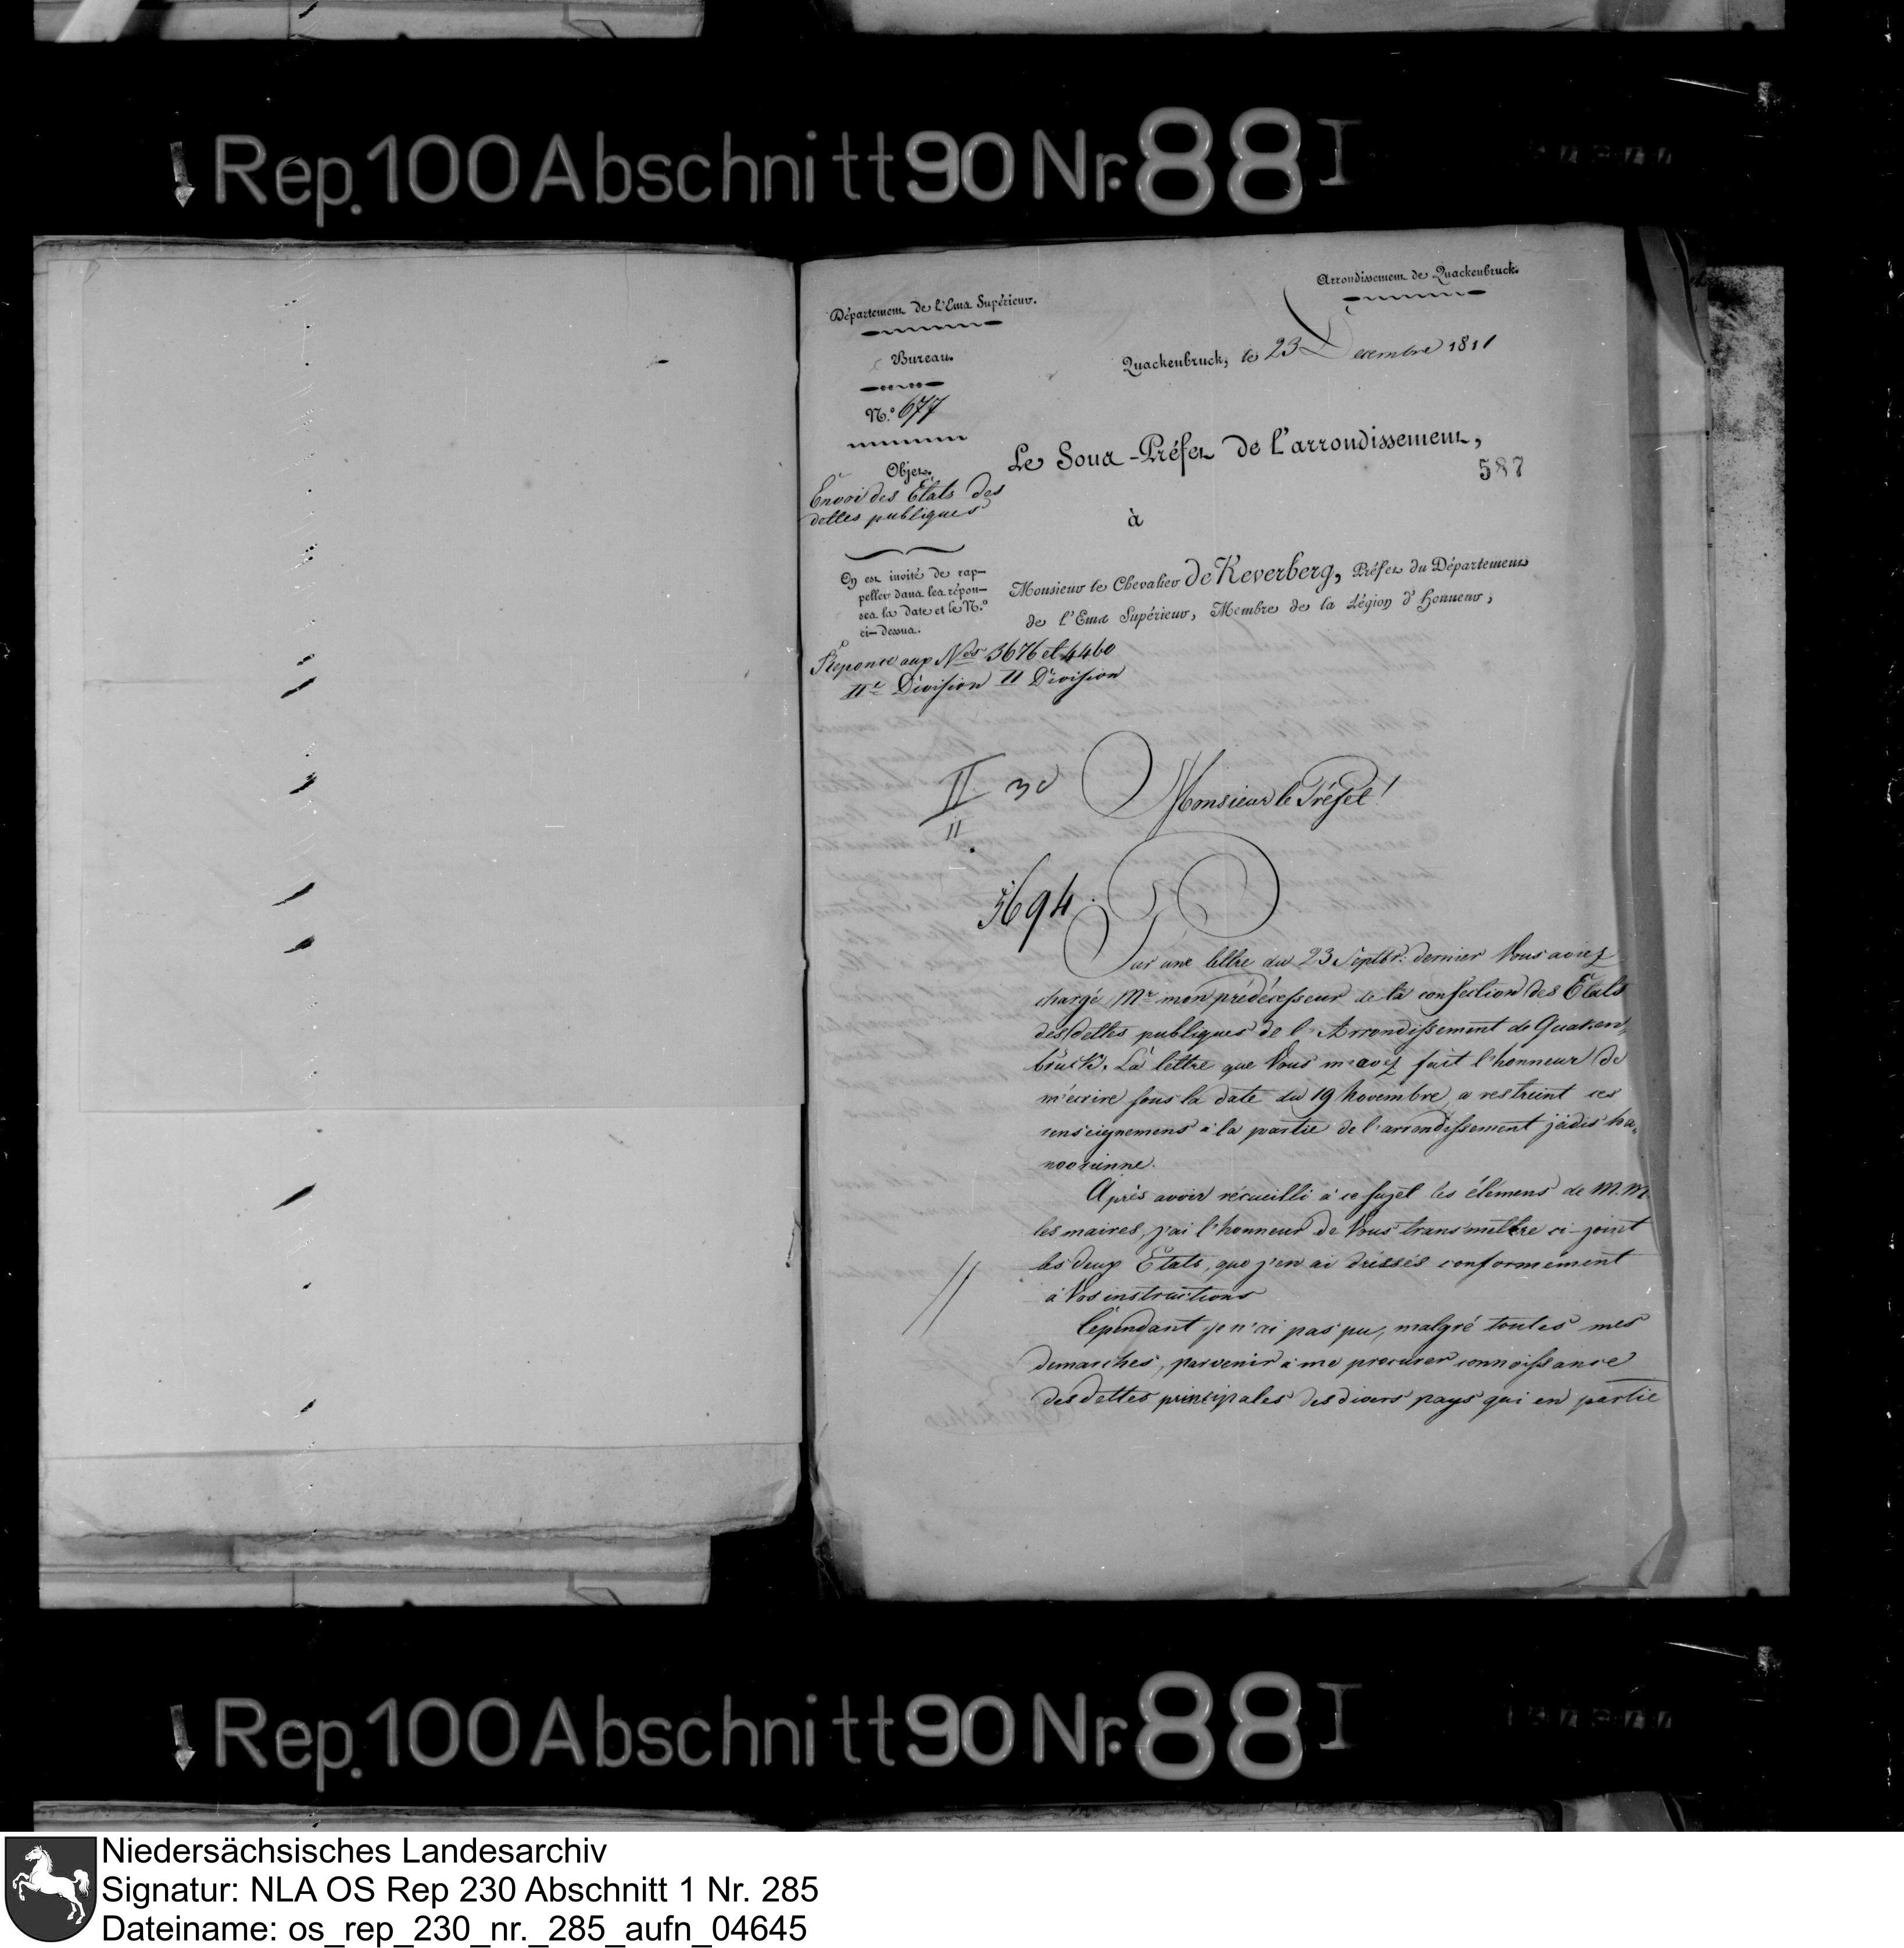 Rep. 100 Abschnitt 90 Nr. 88 I
Département de l'Ems Supérieur.
Arrondissement de Quackenbruck.
Bureau.
Quackenbruck, le 23 Decembre 1811
N.º 677
Le Sous-Préfet de l'arrondissement,
587
Objet.
Envoi des Etats des
dettes publiques
à
On est invité de rap-
peller dans les répon-
ses la date et le N.º
ci-dessus.
Monsieur le Chevalier de Keverberg, Préfet du Département
de l'Ems Supérieur, Membre de la Légion d'Honneur,
Réponse aux Nos 3676 et 4460
IIe Division II Division
II
II
Monsieur le Préfet!
3694.
Par une lettre du 23 Septbr. dernier Vous aviez
chargé Mr mon prédécesseur de la confection des Etats
des dettes publiques de l'Arrondissement de Quaken-
brück. La lettre que Vous m'avez fait l'honneur de
m'écrire sous la date du 19 Novembre a restreint ces
renseignemens à la partie de l'arrondissement jadis ha-
novrienne.
Après avoir récueilli à ce sujet les élémens de M.M.
les maires, j'ai l'honneur de Vous transmettre ci-joint
les deux Etats, que j'en ai dressés conformement
à Vos instructions
Cependant je n'ai pas pu, malgré toutes mes
demarches, parvenir à me procurer connoissance
des dettes principales des divers pays qui en partie
Rep. 100 Abschnitt 90 Nr. 88 I
Niedersächsisches Landesarchiv
Signatur: NLA OS Rep 230 Abschnitt 1 Nr. 285
Dateiname: os_rep_230_nr._285_aufn_04645